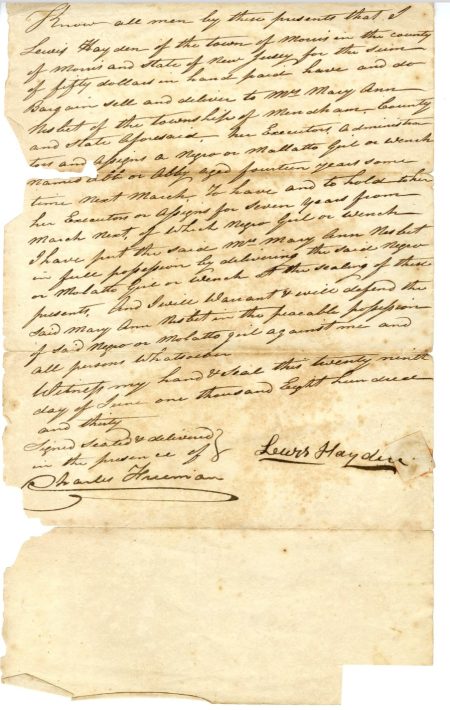 Know all men by these presents that I
Lewis Hayden of the town of Morris in the county
of Morris and State of New Jersey for the sum
of fifty dollars in hand paid have and do
Bargain sell and deliver to Mrs Mary Ann
Nesbet of the township of Mendham County
and State Aforesaid her Executors, Administra
tors and Assigns a Negro or Mollatto Girl or Wench
named or Abby aged fourteen years some
time next March. To have and to hold to her
her Executors or Assigns for Seven years from
March next, of Which Negro Girl or Wench
I have put the said Mrs Mary Ann Nesbet
in full possession by delivering the said Negro
or Molatto Girl or Wench At the sealing of these
presents, And I will Warrant & will defend the
said Mary Ann Nesbet in the peacable possession
of said Negro or Molatto girl against me and
all persons Whatsoever
Witness my hand & Seal this twenty ninth
day of June one thousand Eight hundred
and thirty
Signed Sealed & delivered
in the presence of
Lewis Hayden
Charles Freeman